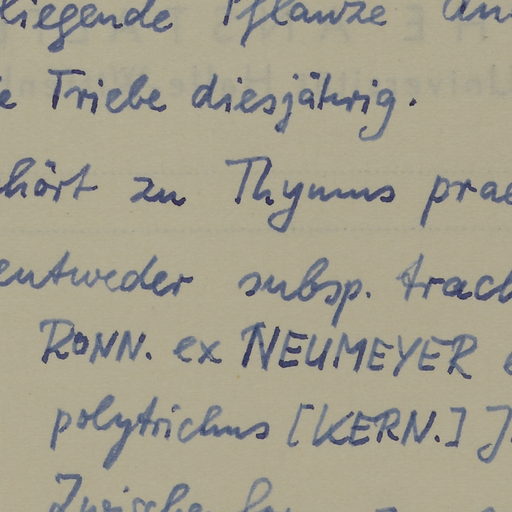 liegende Pflanze
Triebe diesjährig.
zu Thymus prae
entweder subsp. trach
RONN. ex NEUMEYER
polytrichus [KERN.] J